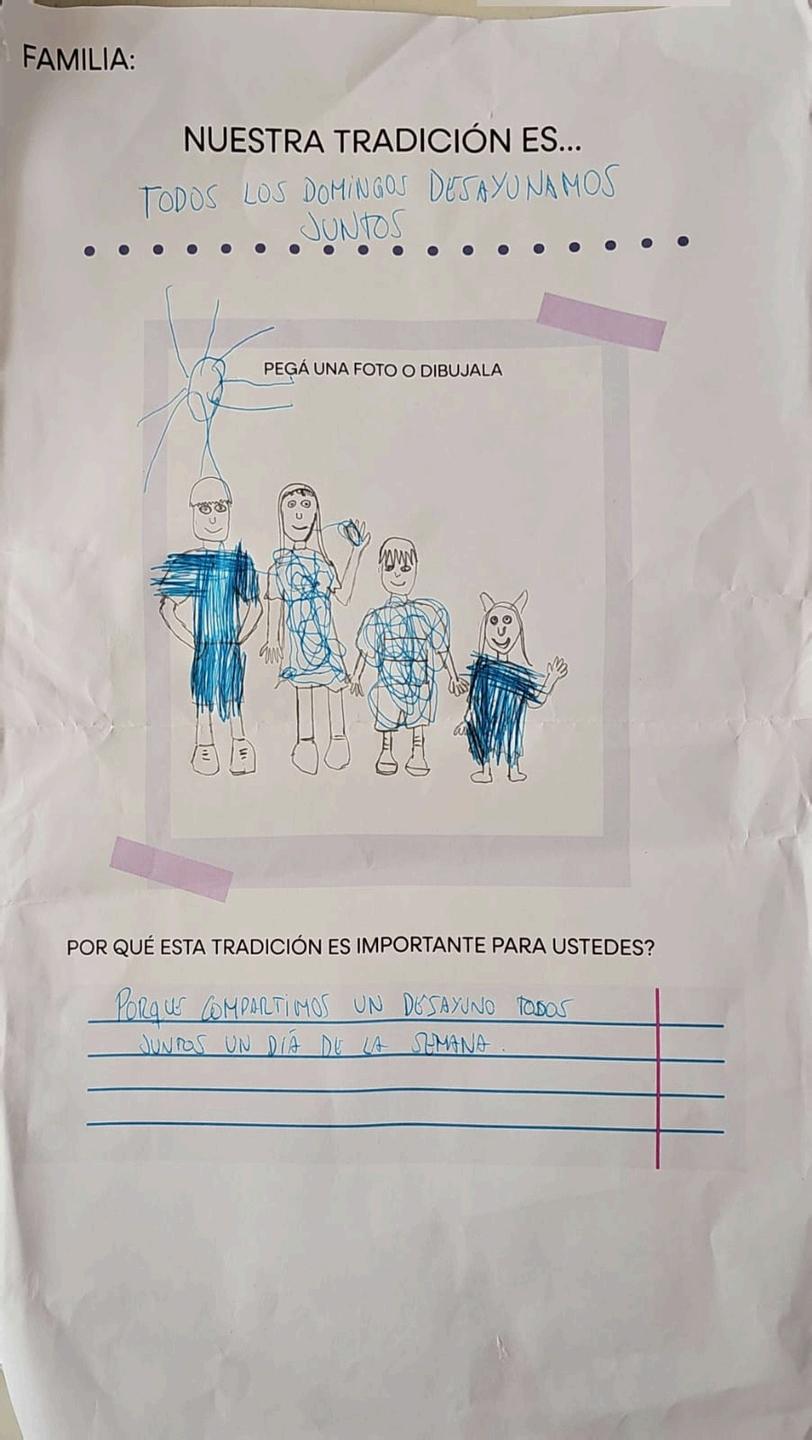 FAMILIA:
NUESTRA TRADICIÓN ES...
TODOS LOS DOMINGOS DESAYUNAMOS
JUNTOS
PEGÁ UNA FOTO O DIBUJALA
POR QUÉ ESTA TRADICIÓN ES IMPORTANTE PARA USTEDES?
PORQUE COMPARTIMOS UN DESAYUNO TODOS
JUNTOS UN DÍA DE LA SEMANA.